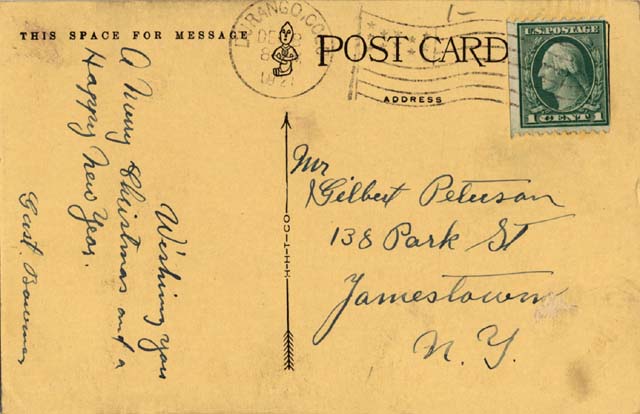 THIS SPACE FOR MESSAGE
POST CARD
ADDRESS
DURANGO, COLO.
DEC
U.S. POSTAGE
1 CENT 1
Wishing you
A Merry Christmas and a
Happy New Year.
Gust.
H-H-T-CO
Mr
Gilbert Peterson
138 Park St
Jamestown
N. Y.